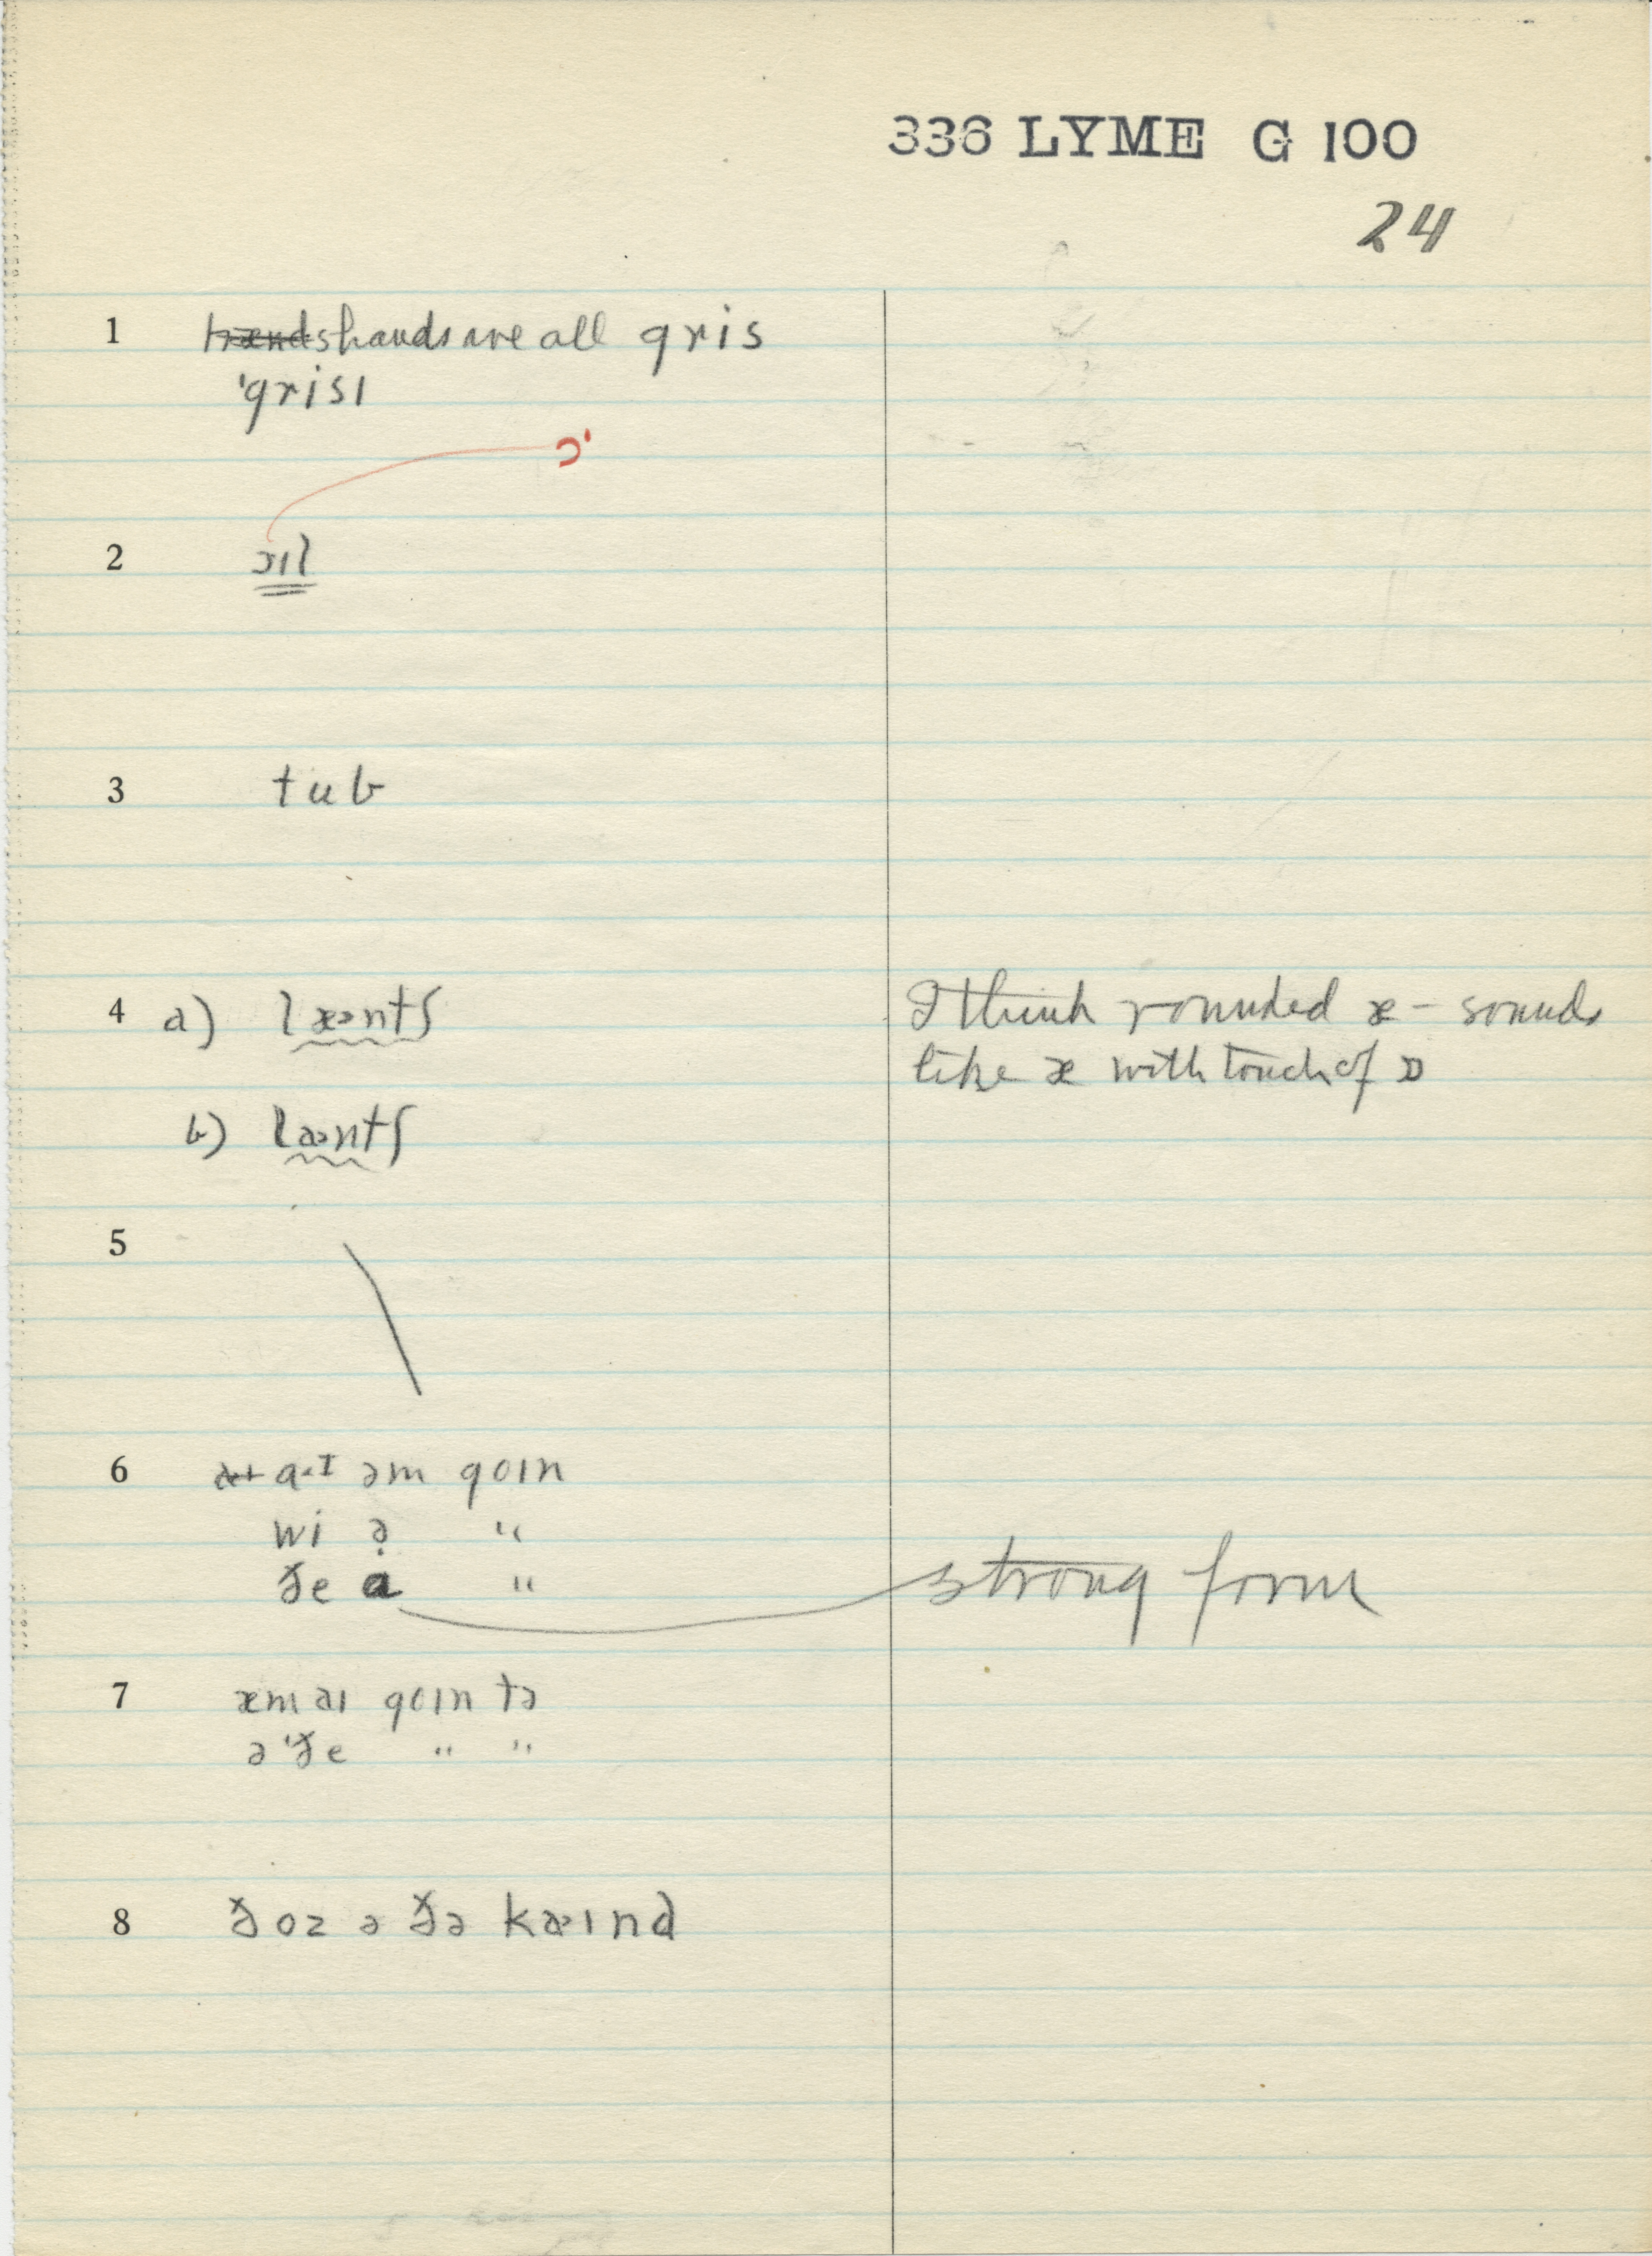 336 LYME G 100
24
1 hænds hands are all gris
ˈgrisɪ
ɔ'
2 ɔɪl
3 tub
4 a) læɔntʃ I think rounded æ - sounds
like æ with touch of ɒ
b) laɔntʃ
5
6 a·ɪ əm goɪn
wi ə̣ "
ðe a "
strong form
7 æm aɪ goɪn tə
ə ˈðe " "
8 ðoz ə ðə kaɪnd